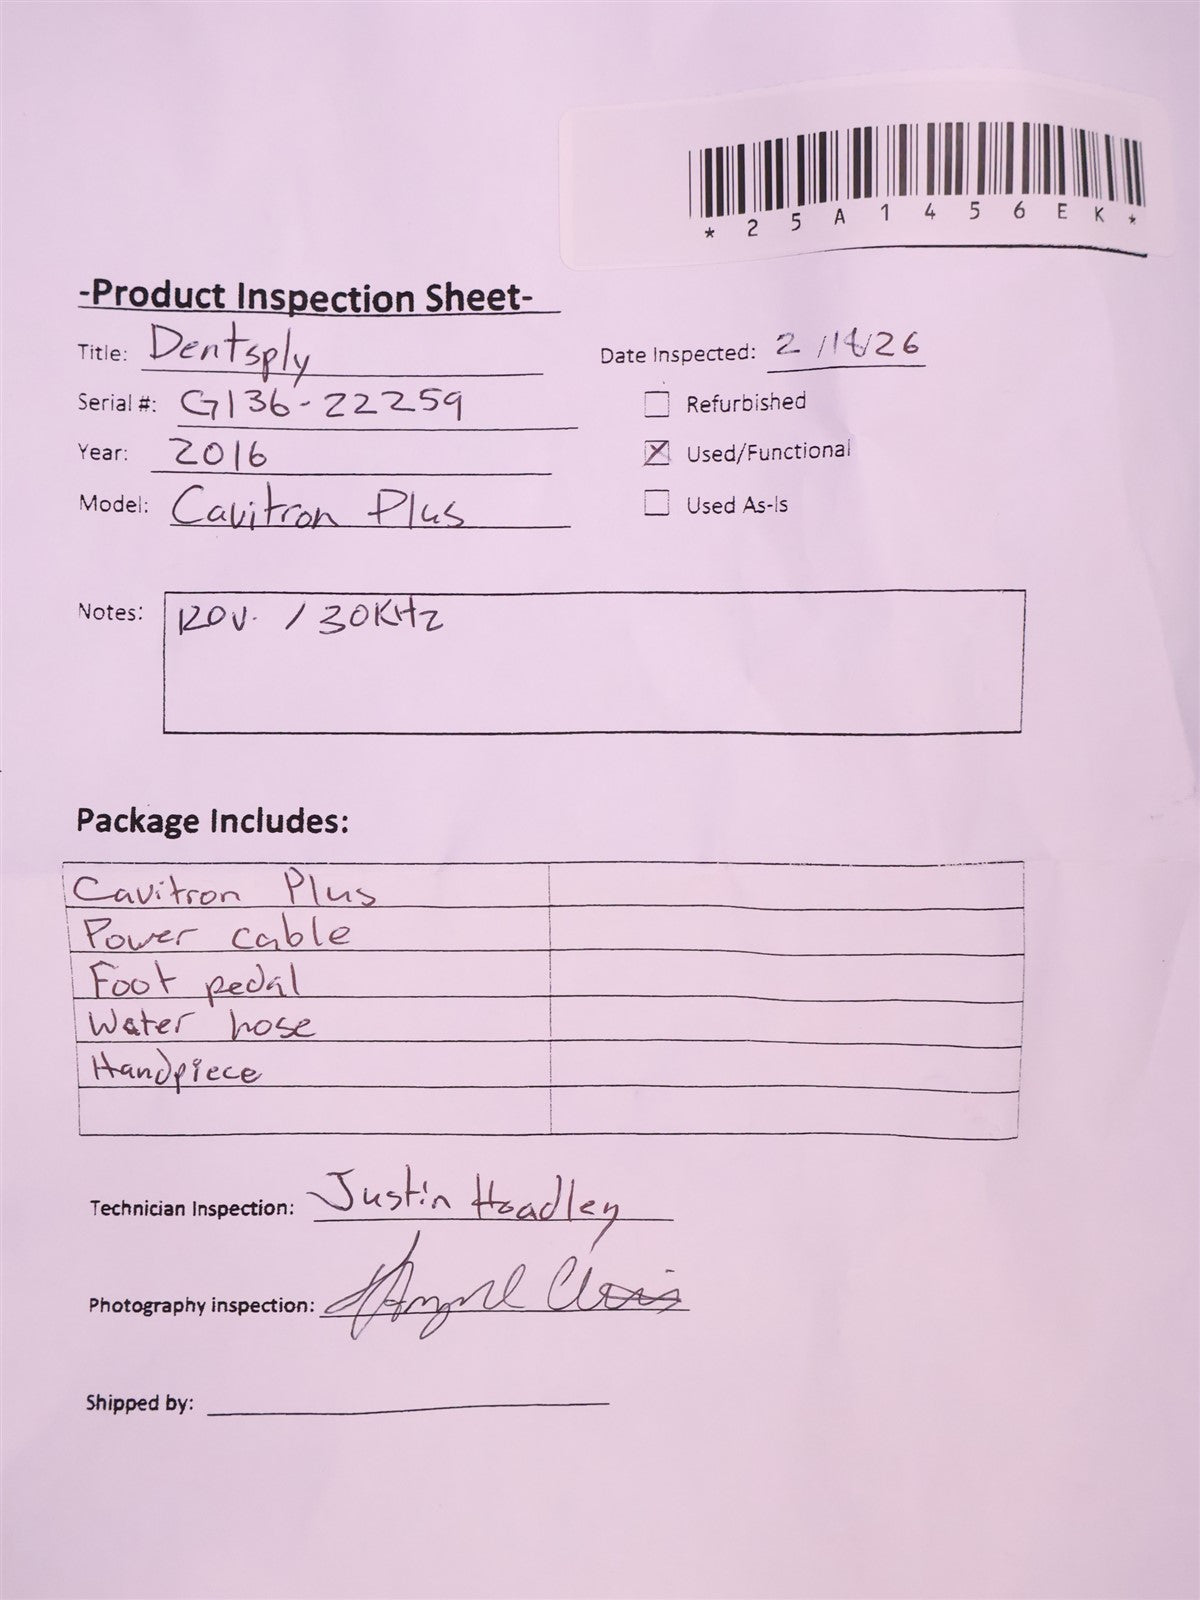 *25A1456EK*
-Product Inspection Sheet-
Title: Dentsply
Date Inspected: 2/14/26
Serial #: G136-22259
Refurbished
Year: 2016
Used/Functional
Model: Cavitron Plus
Used As-Is
Notes: 120V. / 30KHz
Package Includes:
Cavitron Plus
Power cable
Foot pedal
Water hose
Handpiece
Technician Inspection: Justin Hoadley
Photography inspection:
Shipped by: